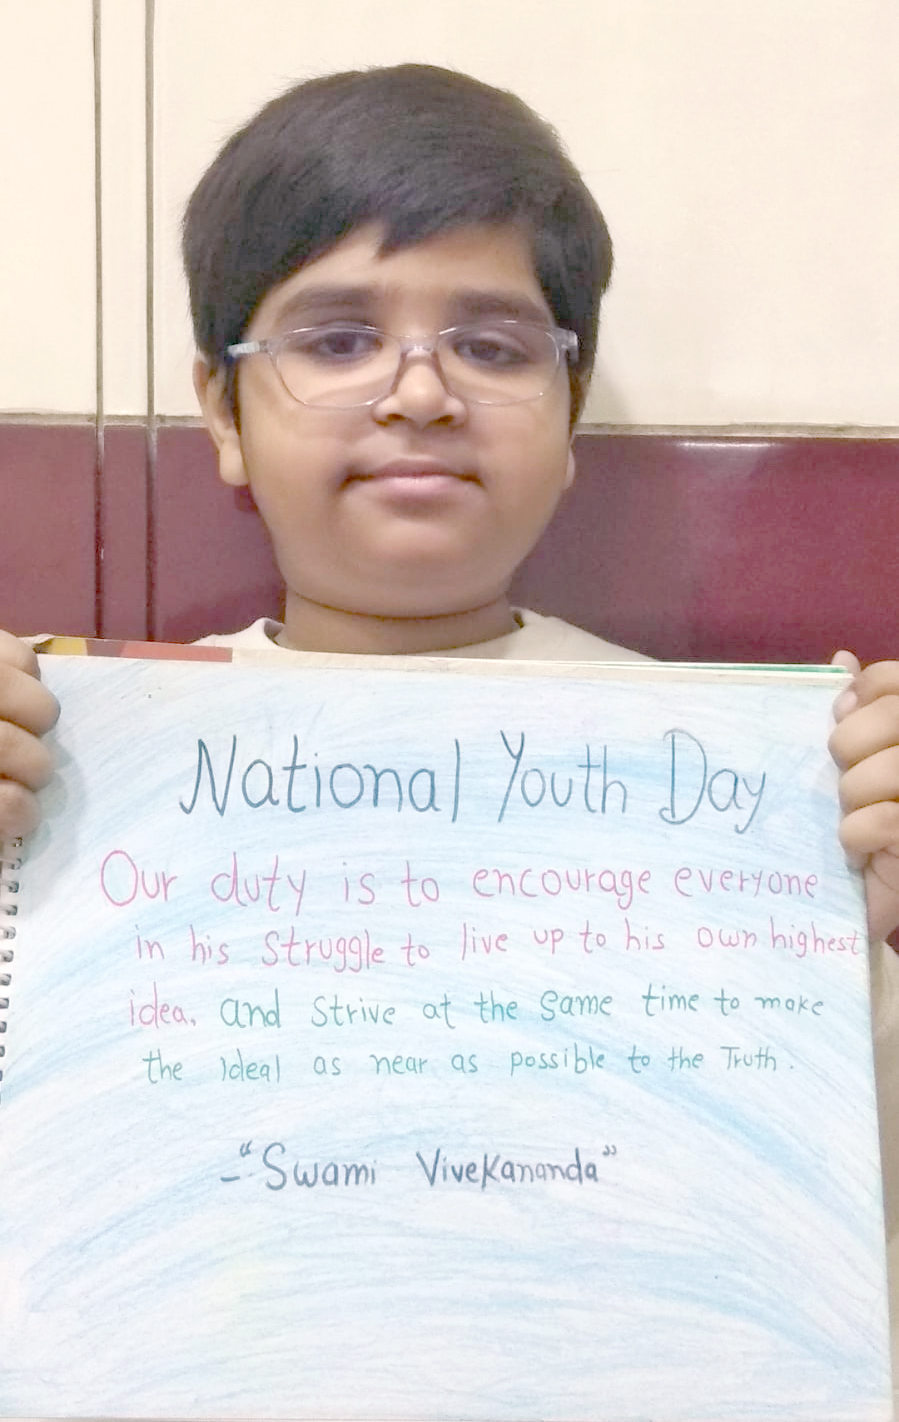 National Youth Day
Our duty is to encourage everyone
in his Struggle to live up to his own highest
idea. and Strive at the Same time to make
the Ideal as near as possible to the Truth.
-“Swami Vivekananda”